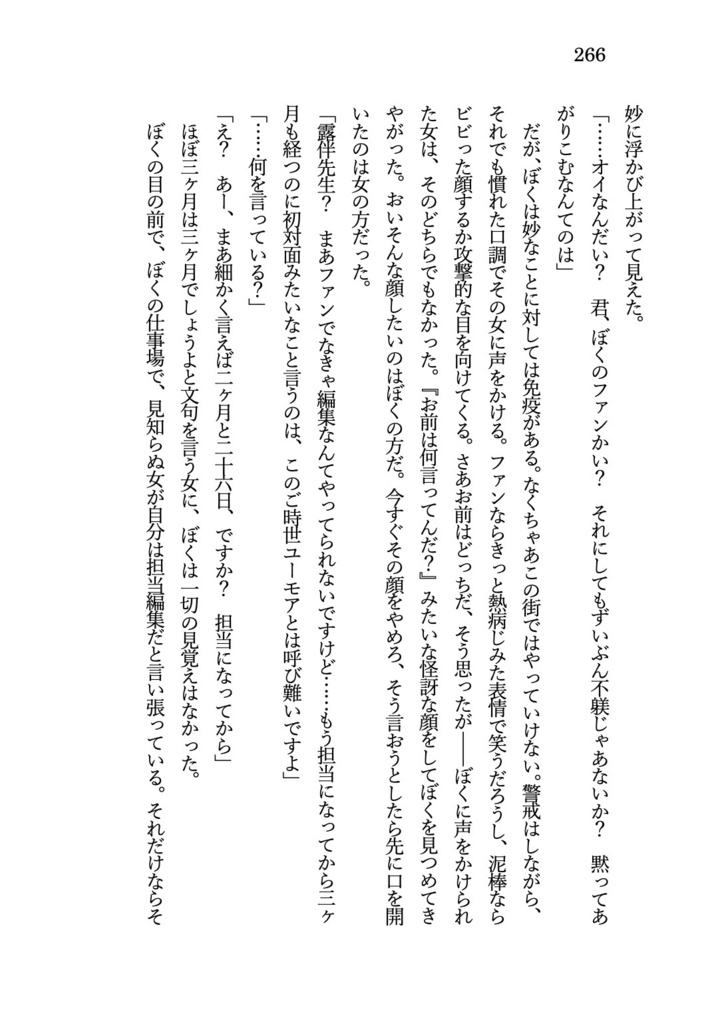 266
妙に浮かび上がって見えた。
「……オイなんだい？　君、ぼくのファンかい？　それにしてもずいぶん不躾じゃあないか？　黙ってあ
がりこむなんてのは」
　だが、ぼくは妙なことに対しては免疫がある。なくちゃあこの街ではやっていけない。警戒はしながら、
それでも慣れた口調でその女に声をかける。ファンならきっと熱病じみた表情で笑うだろうし、泥棒なら
ビビった顔するか攻撃的な目を向けてくる。さあお前はどっちだ、そう思ったが――ぼくに声をかけられ
た女は、そのどちらでもなかった。『お前は何言ってんだ？』みたいな怪訝な顔をしてぼくを見つめてき
やがった。おいそんな顔したいのはぼくの方だ。今すぐその顔をやめろ、そう言おうとしたら先に口を開
いたのは女の方だった。
「露伴先生？　まあファンでなきゃ編集なんてやってられないですけど……もう担当になってから三ヶ
月も経つのに初対面みたいなこと言うのは、このご時世ユーモアとは呼び難いですよ」
「……何を言っている？」
「え？　あー、まあ細かく言えば二ヶ月と二十六日、ですか？　担当になってから」
　ほぼ三ヶ月は三ヶ月でしょうよと文句を言う女に、ぼくは一切の見覚えはなかった。
　ぼくの目の前で、ぼくの仕事場で、見知らぬ女が自分は担当編集だと言い張っている。それだけならそ